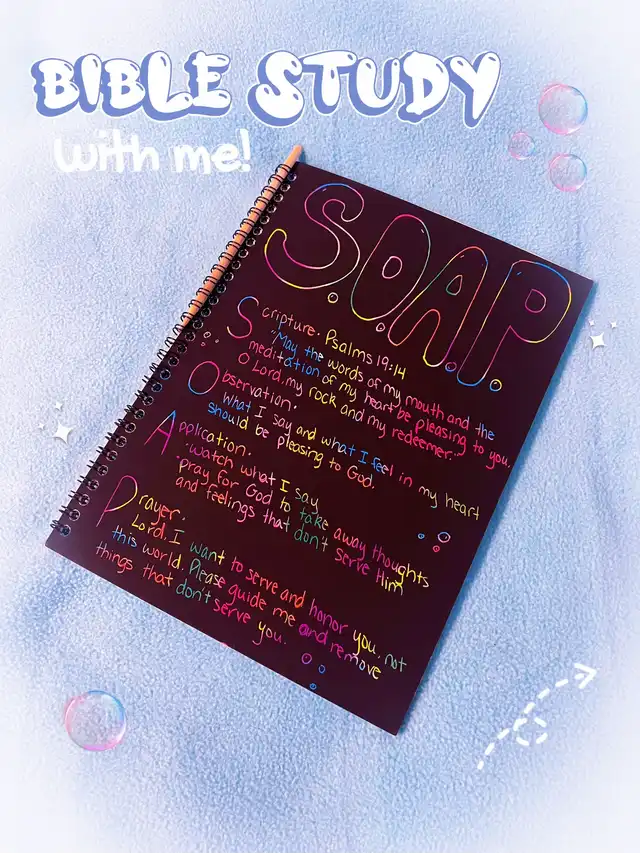 BIBLE STUDY
with me!
S.O.A.P
Scripture. Psalms 19:14
"May the words of my mouth and the
meditation of my heart be pleasing to you,
O Lord, my rock and my redeemer."
Observation.
What I say and what I feel in my heart
should be pleasing to God.
Application.
·watch what I say
·pray for God to take away thoughts
and feelings that don't serve Him
Prayer.
Lord, I want to serve and honor you, not
this world. Please guide me and remove
things that don't serve you.